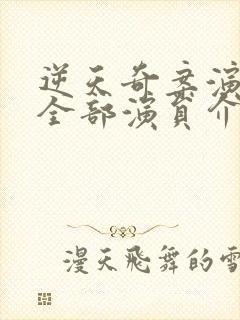 逆天奇案演
全部演员介
漫天飞舞的雪